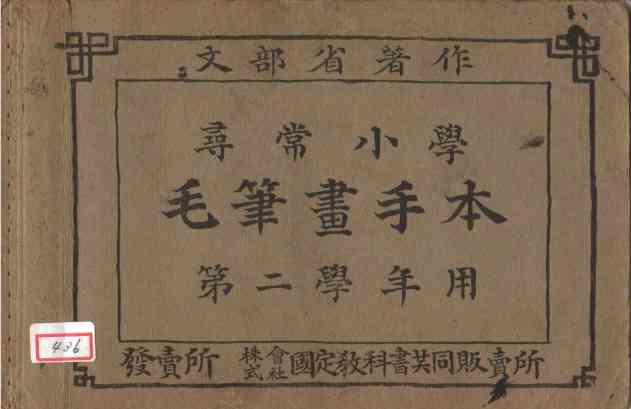 文部省著作
尋常小學
毛筆畫手本
第二學年用
發賣所 株式會社國定教科書共同販賣所
436